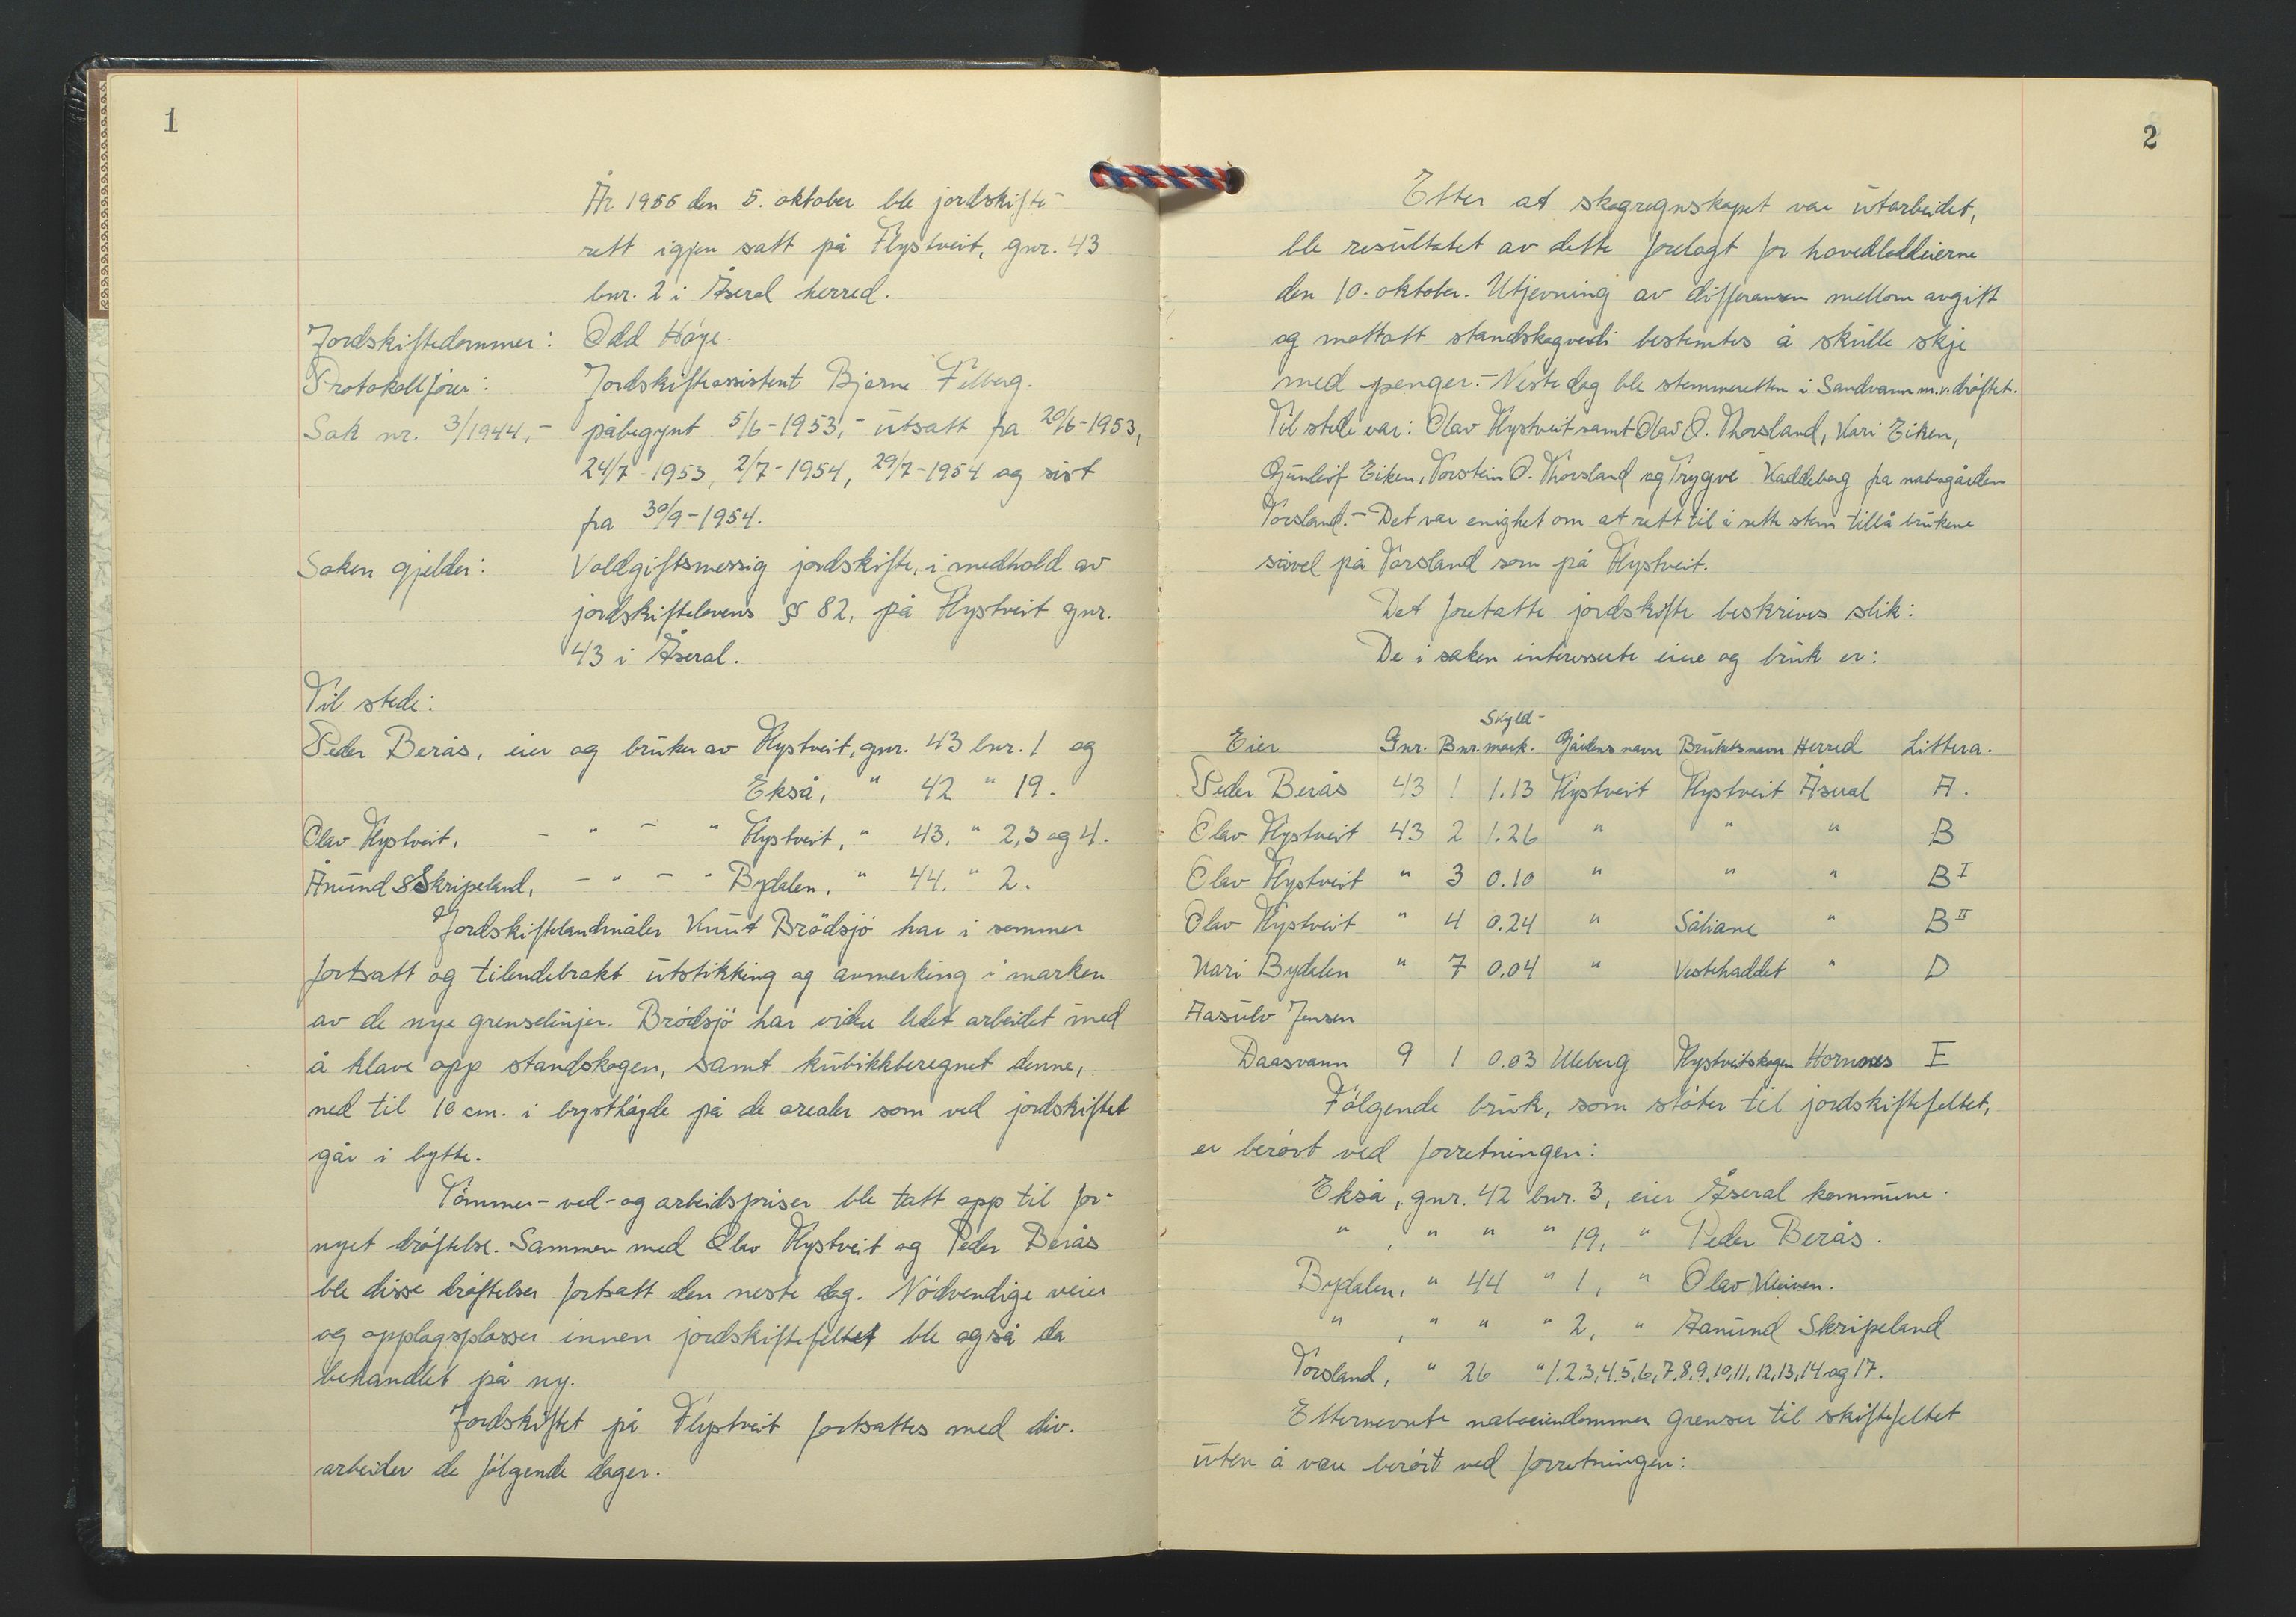 1
År 1955 den 5. oktober ble jordskifte-
rett igjen satt på Flystveit, gnr. 43
bnr. 2 i Åseral herred.
Jordskiftedommer: Odd Høye.
Protokollfører: Jordskifteassistent Bjarne Felberg.
Sak nr. 3/1944,- påbegynt 5/6-1953,- utsatt fra 20/6-1953,
24/7-1953, 2/7-1954, 29/7-1954 og sist
fra 30/9-1954.
Saken gjelder: Voldgiftsmessig jordskifte, i medhold av
jordskiftelovens § 82, på Flystveit gnr.
43 i Åseral.
Til stede:
Peder Berås, eier og bruker av Flystveit, gnr. 43 bnr. 1 og
Ekså, " 42 " 19.
Olav Flystveit, - " - " Flystveit, " 43. " 2, 3 og 4.
Ånund S Skripeland, - " - " Bydalen, " 44. " 2.
Jordskiftelandmåler Knut Brødsjø har i sommer
fortsatt og tilendebrakt utstikking og avmerking i marken
av de nye grenselinjer. Brødsjø har videre ledet arbeidet med
å klave opp standskogen, samt kubikkberegnet denne,
ned til 10 cm. i brysthøyde på de arealer som ved jordskiftet
går i bytte.
Tømmer- ved- og arbeidspriser ble tatt opp til for-
nyet drøftelse. Sammen med Olav Flystveit og Peder Berås
ble disse drøftelser fortsatt den neste dag. Nødvendige veier
og opplagsplasser innen jordskiftefeltet ble også da
behandlet på ny.
Jordskiftet på Flystveit fortsattes med div.
arbeider de følgende dager.
2
Etter at skogregnskapet var utarbeidet,
ble resultatet av dette forelagt for hovedloddeierne
den 10. oktober. Utjevning av differansen mellom avgitt
og mottatt standskogverdi bestemtes å skulle skje
med penger.- Neste dag ble stemmeretten i Sandvann m.v. drøftet.
Til stede var: Olav Flystveit samt Olav O. Thorsland, Kari Eiken,
Gunleif Eiken, Torstein O. Thorsland og Trygve Kaddeberg fra nabogården
Torsland.- Det var enighet om at rett til å sette stem tillå brukene
såvel på Torsland som på Flystveit.
Det foretatte jordskifte beskrives slik:
De i saken interesserte eiere og bruk er:
Skyld-
Eier Gnr. Bnr. mark. Gårdens navn Brukets navn Herred Littera.
Peder Berås 43 1 1.13 Flystveit Flystveit Åseral A.
Olav Flystveit 43 2 1.26 " " " B
Olav Flystveit " 3 0.10 " " " B I
Olav Flystveit " 4 0.24 " Såliane " B II
Kari Bydalen " 7 0.04 " Vestehaddet " D
Aasulv Jensen
Daasvann 9 1 0.03 Uleberg Flystveitskogen Hornnes E
Følgende bruk, som støter til jordskiftefeltet,
er berørt ved forretningen:
Ekså, gnr. 42 bnr. 3, eier Åseral kommune.
" , " " " 19, " Peder Berås.
Bydalen, " 44 " 1, " Olav Kleiven.
" , " " " 2, " Aanund Skripeland
Torsland, " 26 " 1.2.3,4.5,6,7.8.9,10,11,12,13,14 og 17.
Etternevnte naboeiendommer grenser til skiftefeltet
uten å være berørt ved forretningen: